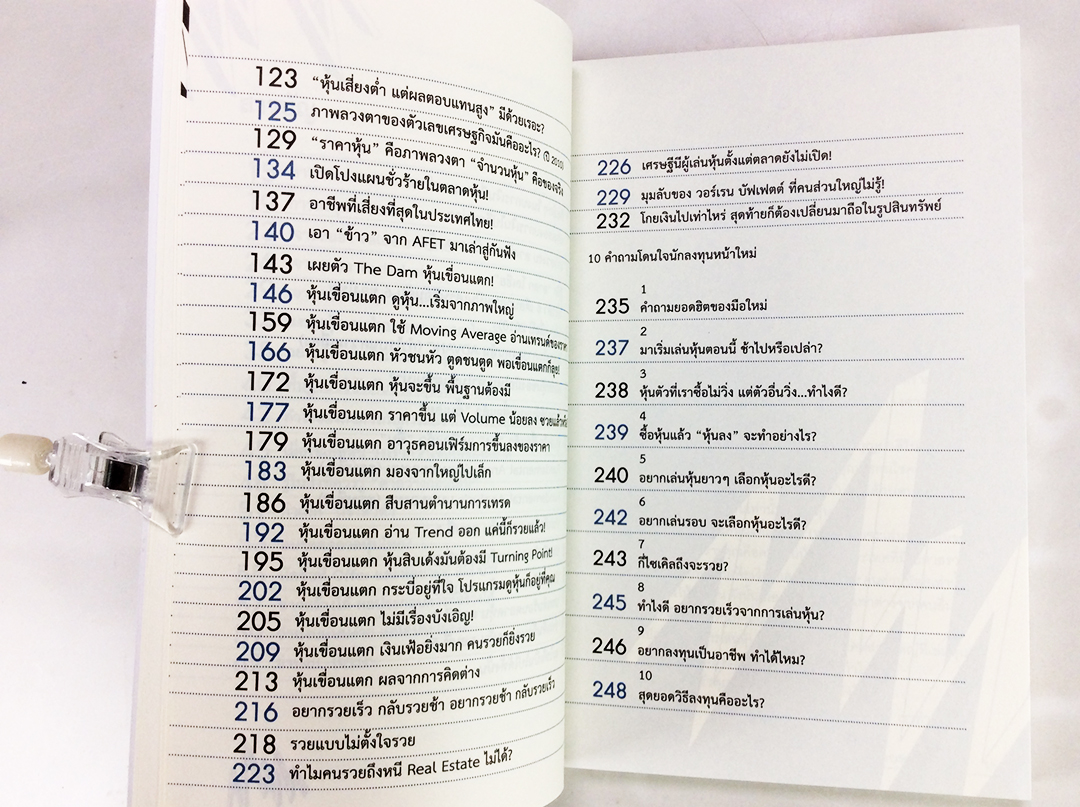 123 “หุ้นเสี่ยงต่ำ แต่ผลตอบแทนสูง” มีด้วยเรอะ?
125 ภาพลวงตาของตัวเลขเศรษฐกิจมันคืออะไร? (ปี 2010)
129 “ราคาหุ้น” คือภาพลวงตา “จำนวนหุ้น” คือของจริง
134 เปิดโปงแผนชั่วร้ายในตลาดหุ้น!
137 อาชีพที่เสี่ยงที่สุดในประเทศไทย!
140 เอา “ข้าว” จาก AFET มาเล่าสู่กันฟัง
143 เผยตัว The Dam หุ้นเขื่อนแตก!
146 หุ้นเขื่อนแตก ดูหุ้น...เริ่มจากภาพใหญ่
159 หุ้นเขื่อนแตก ใช้ Moving Average อ่านเทรนด์ของราคา
166 หุ้นเขื่อนแตก หัวชนหัว ตูดชนตูด พอเขื่อนแตกก็ลุย!
172 หุ้นเขื่อนแตก หุ้นจะขึ้น พื้นฐานต้องมี
177 หุ้นเขื่อนแตก ราคาขึ้น แต่ Volume น้อยลง ซวยแล้ว
179 หุ้นเขื่อนแตก อาวุธคอนเฟิร์มการขึ้นลงของราคา
183 หุ้นเขื่อนแตก มองจากใหญ่ไปเล็ก
186 หุ้นเขื่อนแตก สืบสานตำนานการเทรด
192 หุ้นเขื่อนแตก อ่าน Trend ออก แค่นี้ก็รวยแล้ว!
195 หุ้นเขื่อนแตก หุ้นสิบเด้งมันต้องมี Turning Point!
202 หุ้นเขื่อนแตก กระบี่อยู่ที่ใจ โปรแกรมดูหุ้นก็อยู่ที่คุณ
205 หุ้นเขื่อนแตก ไม่มีเรื่องบังเอิญ!
209 หุ้นเขื่อนแตก เงินเฟ้อยิ่งมาก คนรวยก็ยิ่งรวย
213 หุ้นเขื่อนแตก ผลจากการคิดต่าง
216 อยากรวยเร็ว กลับรวยช้า อยากรวยช้า กลับรวยเร็ว
218 รวยแบบไม่ตั้งใจรวย
223 ทำไมคนรวยถึงหนี Real Estate ไม่ได้?
226 เศรษฐีนีผู้เล่นหุ้นตั้งแต่ตลาดยังไม่เปิด!
229 มุมลับของ วอร์เรน บัฟเฟตต์ ที่คนส่วนใหญ่ไม่รู้!
232 โกยเงินไปเท่าไหร่ สุดท้ายก็ต้องเปลี่ยนมาถือในรูปสินทรัพย์
10 คำถามโดนใจนักลงทุนหน้าใหม่
1
235 คำถามยอดฮิตของมือใหม่
2
237 มาเริ่มเล่นหุ้นตอนนี้ ช้าไปหรือเปล่า?
3
238 หุ้นตัวที่เราซื้อไม่วิ่ง แต่ตัวอื่นวิ่ง...ทำไงดี?
4
239 ซื้อหุ้นแล้ว “หุ้นลง” จะทำอย่างไร?
5
240 อยากเล่นหุ้นยาวๆ เลือกหุ้นอะไรดี?
6
242 อยากเล่นรอบ จะเลือกหุ้นอะไรดี?
7
243 กี่ไซเคิลถึงจะรวย?
8
245 ทำไงดี อยากรวยเร็วจากการเล่นหุ้น?
9
246 อยากลงทุนเป็นอาชีพ ทำได้ไหม?
10
248 สุดยอดวิธีลงทุนคืออะไร?